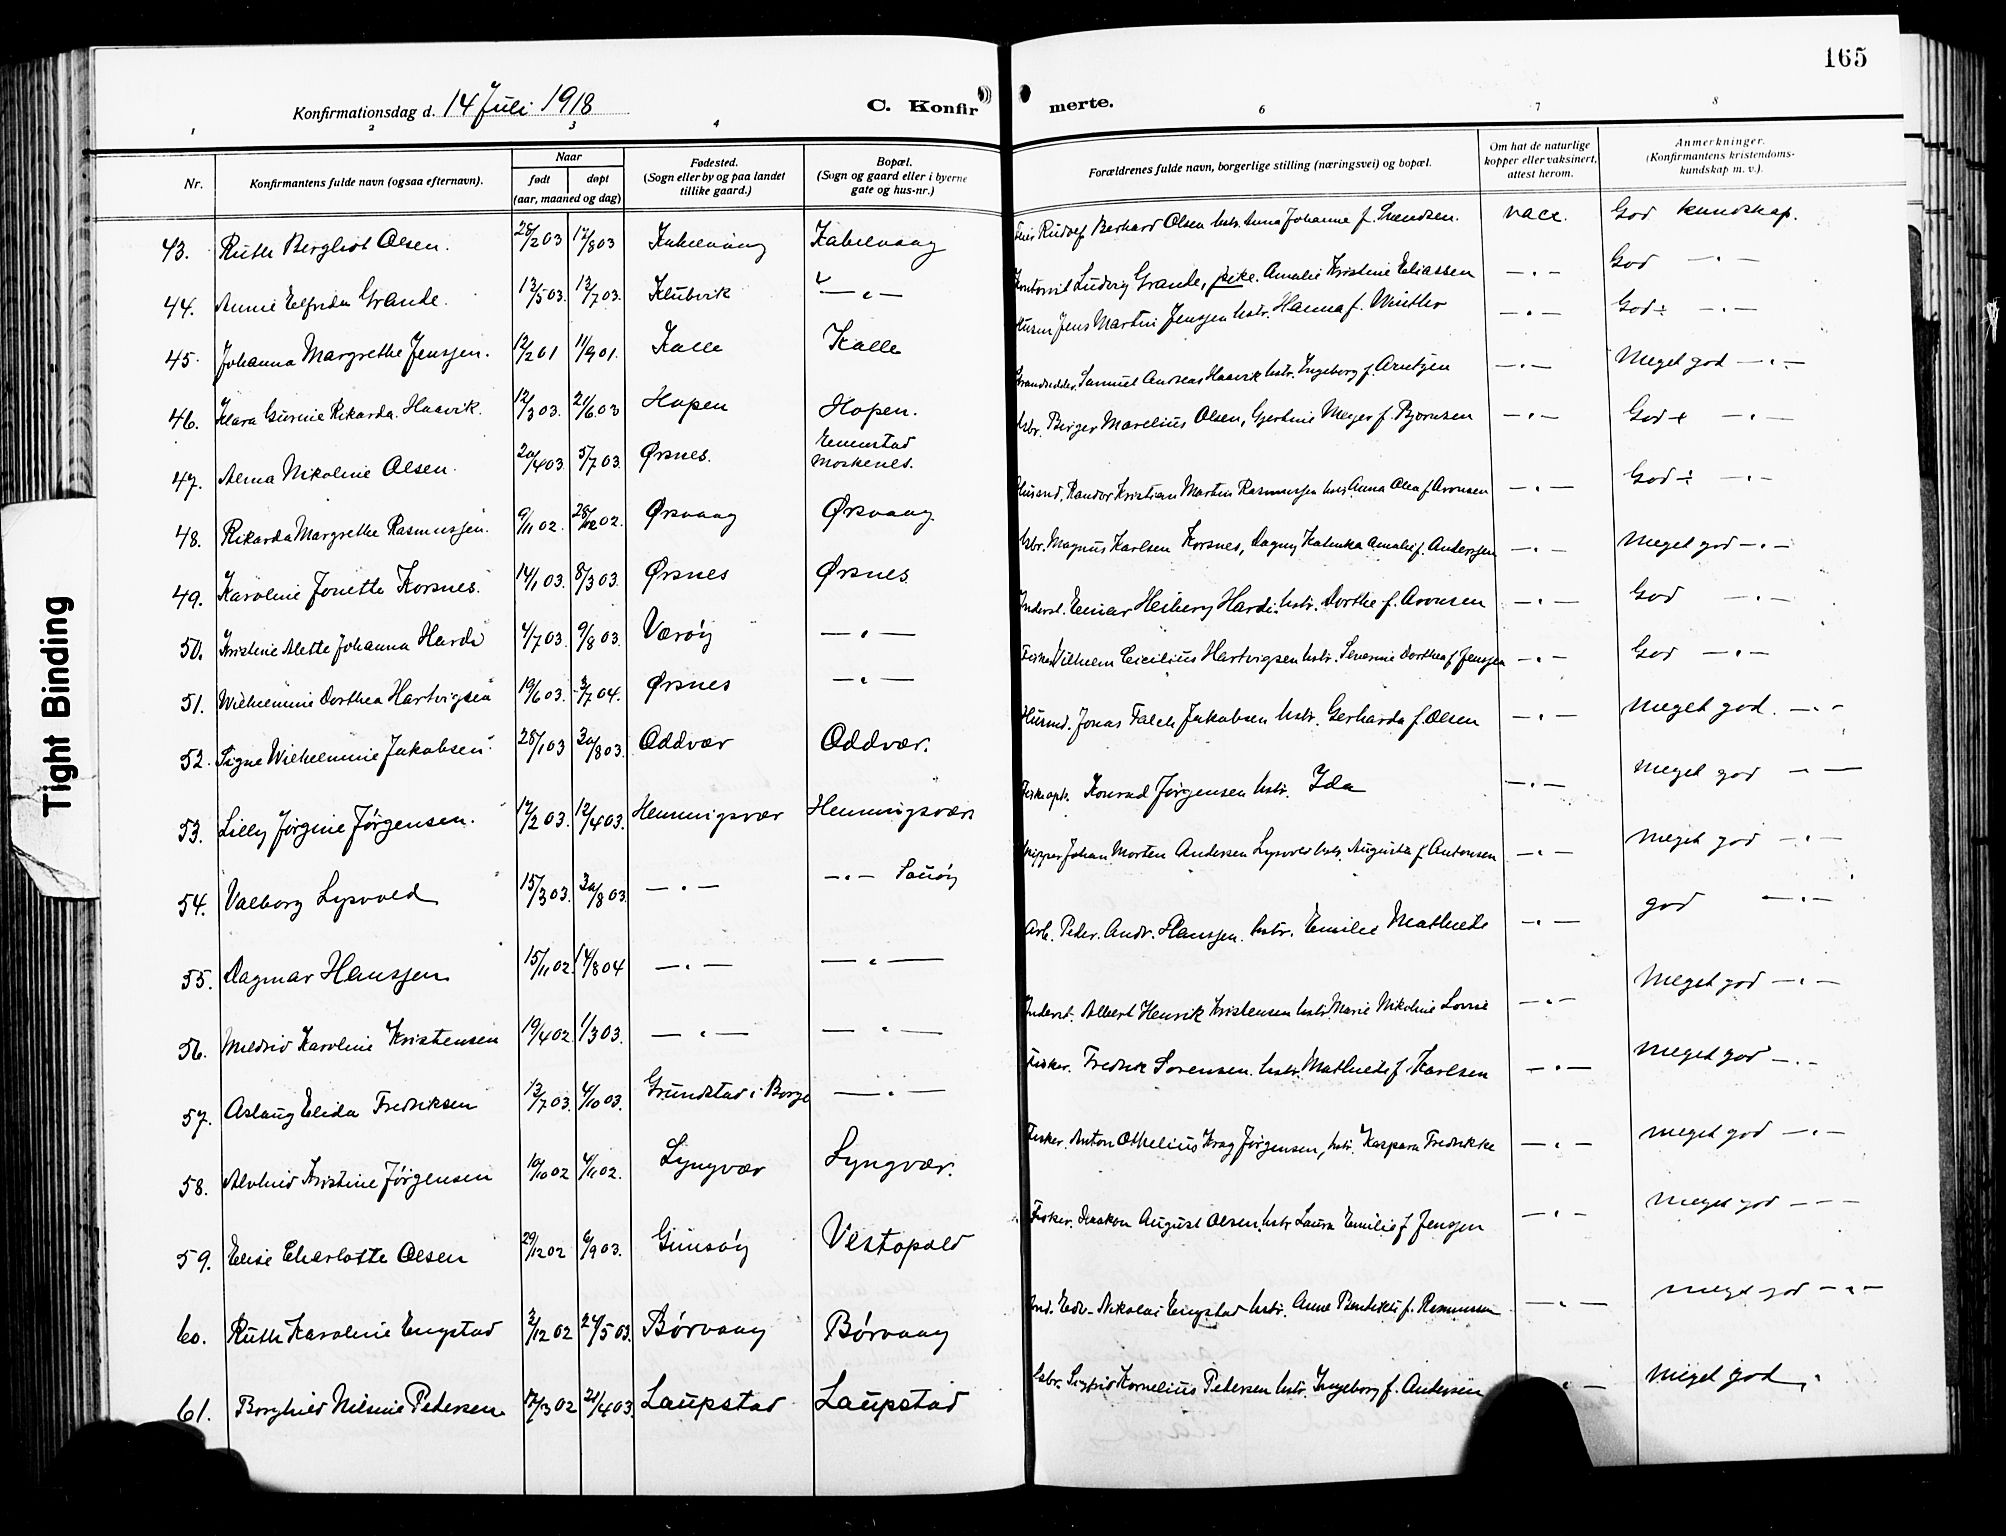 165
Konfirmationsdag d. 14 Juli 1918
C. Konfirmerte.
1 2 3 4 6 7 8
Nr.
Konfirmantens fulde navn (ogsaa efternavn).
Naar
født
døpt
(aar, maaned og dag)
Fødested.
(Sogn eller by og paa landet
tillike gaard.)
Bopæl.
(Sogn og gaard eller i byerne
gate og hus-nr.)
Forældrenes fulde navn, borgerlige stilling (næringsvei) og bopæl.
Om hat de naturlige
kopper eller vaksinert,
attest herom.
Anmerkninger.
(Konfirmantens kristendoms-
kundskap m. v.).
43. Ruth Bergliot Olsen. 28/2 03 17/8 03 Kabelvaag Kabelvaag Rudolf Berhard Olsen hstr. Anna Johanne f. Svendsen. vacc. God kundskap.
44. Annie Elfrida Grande. 13/5 03. 12/7 03. Klubvik —"— Ludvig Grande, pike. Amalie Kristine Eliassen —"— God —"—
45. Johanna Margrethe Jenssen. 12/2 01 11/9 01. Kalle Kalle Husm Jens Martin Jenssen hstr. Hanna f. Winther —"— God÷ —"—
46. Klara Gurine Rikarda Haavik. 12/3 03. 21/6 03 Hopen Hopen. Strandsidder. Samuel Andreas Haavik hstr. Ingeborg f. Arntzen —"— Meget god —"—
47. Alma Nikoline Olsen. 20/4 03. 5/7 03. Ørsnes. Eenstad Moskenes. Gbr. Birger Marelius Olsen, Gjertine Meyer f. Bjørnsen —"— God+ —"—
48. Rikarda Margrethe Rasmussen. 9/11 02. 28/12 02. Ørsvaag Ørsvaag. Husmd. Randor Kristian Martin Rasmussen hstr Anna Olea f Aronsen —"— God÷ —"—
49. Karoline Jonette Korsnes. 14/1 03. 8/3 03. Ørsnes Ørsnes. Gbr. Magnus Karlsen Korsnes, Dagny Katinka Amalie f. Anderssen —"— Meget god —"—
50. Kristine Alette Johanna Hardi 4/7 03. 9/8 03. Værøy —"— Inderst. Einar Heiberg Hardi hstr. Dorthe f. Aronsen —"— God —"—
51. Wilhelmine Dorthea Hartvigsen 19/6 03. 3/7 04. Ørsnes —"— Fisker Vilhelm Cicilius Hartvigsen hstr. Severine Dorthea f Jenssen —"— God —"—
52. Signe Wilhelmine Jakobsen. 28/1 03 30/8 03. Oddvær Oddvær. Husmd. Jonas Falch Jakobsen hstr. Gerharda f. Olsen —"— Meget god. —"—
53. Lilly Jørgine Jørgensen. 17/2 03. 12/4 03. Henningsvær Henningsvær Konrad Jørgensen hstr. Ida —"— Meget god — —
54. Valborg Lysvold 15/3 03. 30/8 03. —"— —"— Sauøy Skipper Johan Morten Andersen Lysvold hstr. Augusta f. Antonsen —"— Meget god —"—
55. Dagmar Hanssen 15/11 02 14/8 04 —"— —"— Arb. Peder. Andr. Hanssen. hstr. Emilie Mathilde —"— god —"—
56. Mildrid Karoline Kristensen 19/4 02 1/3 03. —"— —"— Inderst. Albert Henrik Kristensen hstr. Marie Nikoline Lovise —"— Meget god —"—
57. Aslaug Elida Fredriksen 13/7 03. 4/10 03. Grundstad i Borge —"— Fisker. Fredrik Sørensen. hstr. Mathilde f. Karlsen —"— Meget god —"—
58. Alvhild Kristine Jørgensen 10/10 02 4/11 02. Lyngvær Lyngvær. Fisker. Anton Othelius Krag Jørgensen, hstr. Kaspara Fredrikke —"— Meget god —"—
59. Elise Charlotte Olsen 29/12 02 6/9 03. Gimsøy Vestopold Fisker. Haakon August Olsen. hstr Laura Emilie f Jenssen —"— Meget god — — —
60. Ruth Karoline Engstad 3/12 02 24/5 03. Børvaag Børvaag Edv. Nikolai Engstad hstr. Anne Bendikte f. Rasmussen —"— Meget god —"—
61. Borghild Nilsine Petersen 12/3 02 21/4 03. Laupstad Laupstad Gbr. Sigfrid Kornelius Petersen hstr. Ingeborg f. Andersen —"— Meget god "
Tight Binding